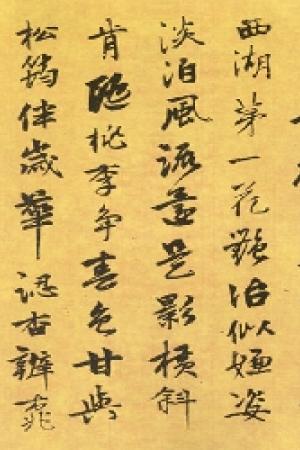 西湖第一花艷冶似姿
淡泊風流盡是影橫斜
肯隨桃李爭春色甘與
松筠伴歲華認杏辨